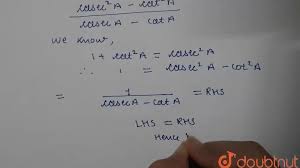 cosec²A - cot²A
cosecA - cotA
We know,
1 + cot²A = cosec²A
∴ 1 = cosec²A - cot²A
= 1 / cosecA - cotA = RHS
LHS = RHS
Hence
doubtnut